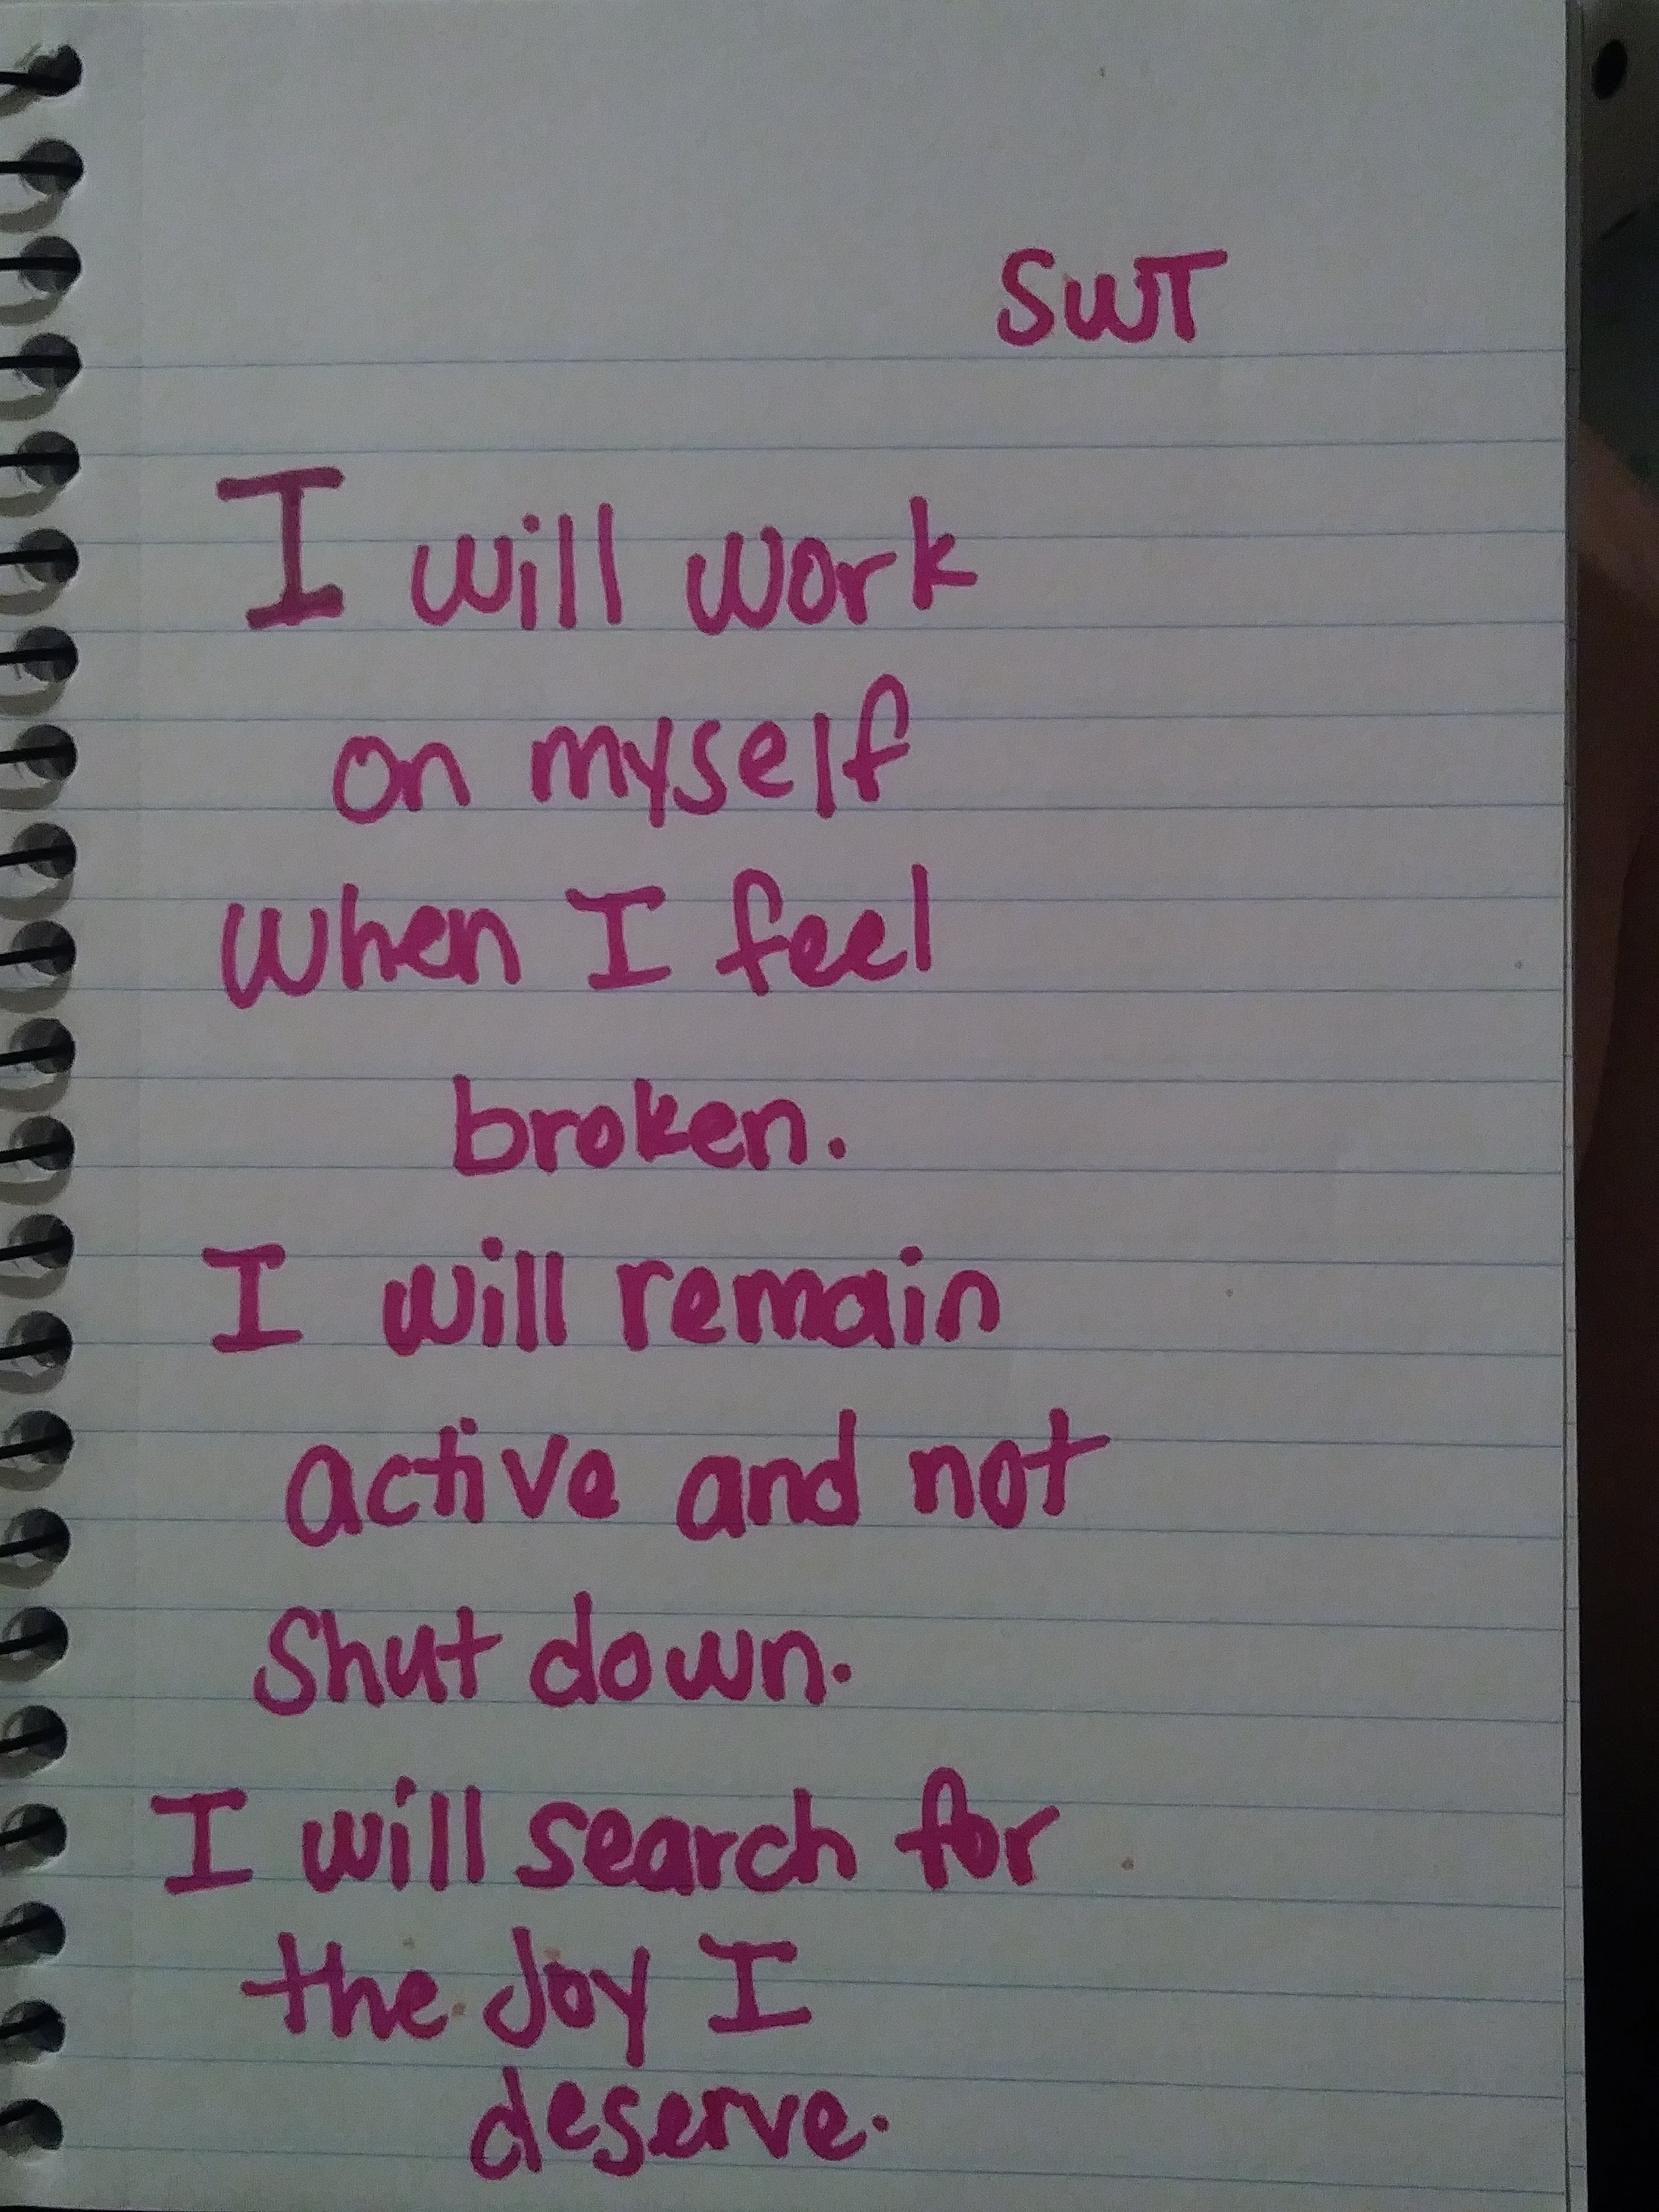 SWT
I will work
on myself
when I feel
broken.
I will remain
active and not
Shut down.
I will search for
the Joy I
deserve.